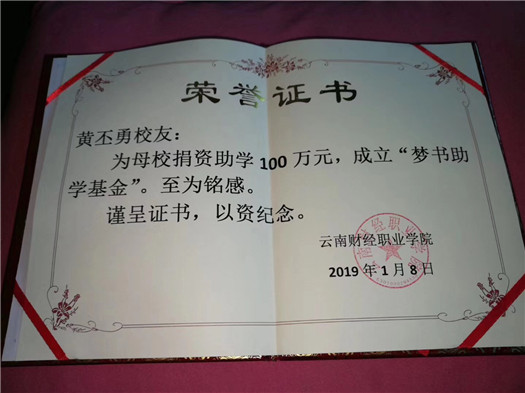 荣誉证书
黄丕勇校友：
为母校捐资助学100万元，成立“梦书助
学基金”。至为铭感。
谨呈证书，以资纪念。
云南财经职业学院
2019年1月8日